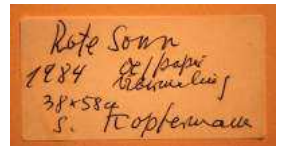 Rote Sonn
1984 oel/papier
38x58cm
S. Kopfermann